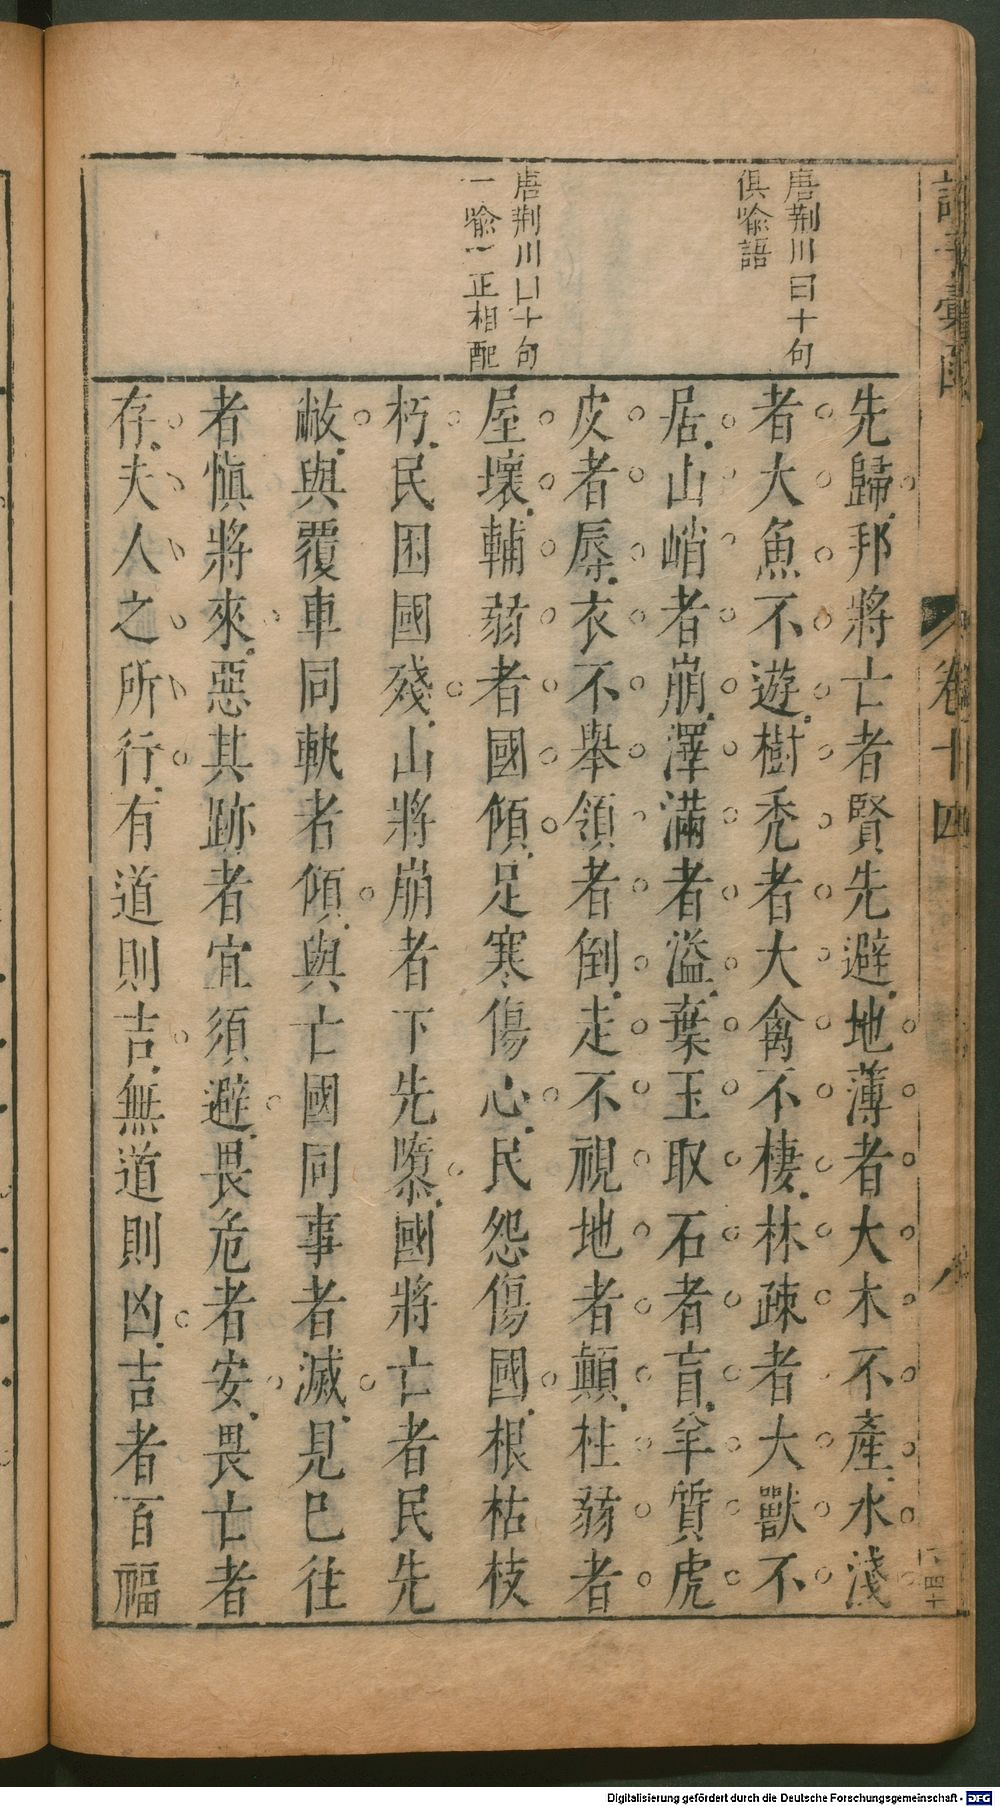 諸子彙函
卷十四
八
唐荆川曰十句
俱喻語
唐荆川曰十句
一喻一正相配
先歸邦將亡者賢先避地薄者大木不產水淺
者大魚不遊樹禿者大禽不棲林疎者大獸不
居山峭者崩澤滿者溢葉玉取石者盲羊質虎
皮者辱衣不舉領者倒走不視地者顛柱蒻者
屋壞輔蒻者國傾足寒傷心民怨傷國根枯枝
朽民困國殘山將崩者下先隳國將亡者民先
敝與覆車同軌者傾與亡國同事者滅見已往
者慎將來惡其跡者宜須避畏危者安畏亡者
存夫人之所行有道則吉無道則凶吉者百福
Digitalisierung gefördert durch die Deutsche Forschungsgemeinschaft - DFG